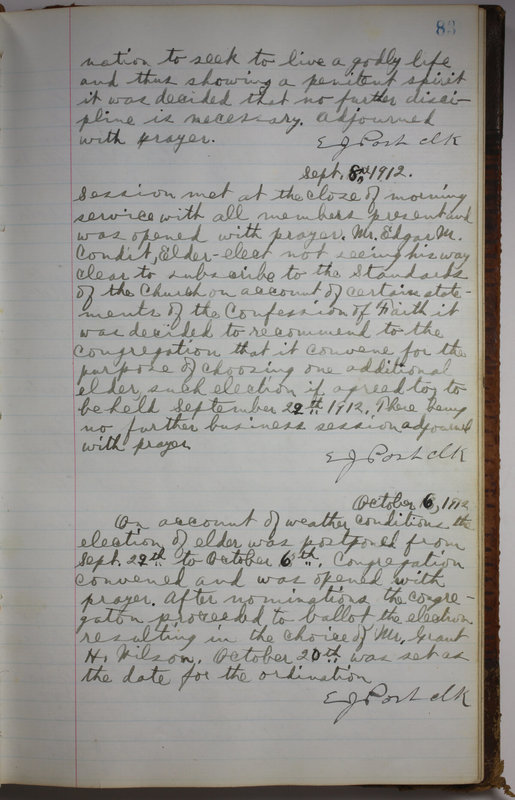 83
nation to seek to live a godly life
and thus showing a penitent spirit
it was decided that no further disci-
pline is necessary. Adjourned
with prayer. E J Post clk
Sept. 8th 1912.
Session met at the close of morning
service with all members present and
was opened with prayer. Mr. Edgar M.
Condit, Elder-elect not seeing his way
clear to subscribe to the Standards
of the Church on account of certain state-
ments of the Confession of Faith it
was decided to recommend to the
Congregation that it convene for the
purpose of choosing one additional
elder, such election if agreed to, to
be held September 29th 1912. There being
no further business session adjourned
with prayer
E J Post clk
October 6, 1912
On account of weather conditions the
election of elder was postponed from
Sept. 29th to October 6th. Congregation
convened and was opened with
prayer. After nominations the congre-
gaton proceeded to ballot the election
resulting in the choice of Mr. Grant
H. Wilson. October 20th was set as
the date for the ordination
E J Post clk